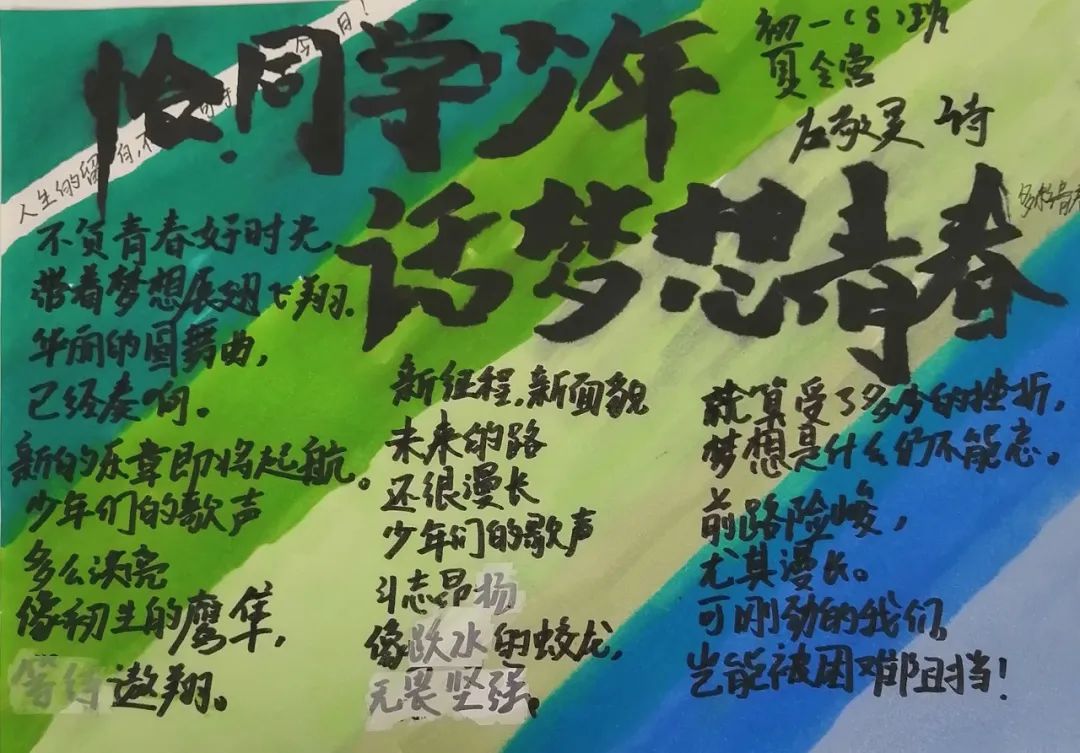 恰同学少年
话梦想青春
初一(8)班
夏全营
左敬灵 诗
人生的留白,
今日!
不负青春好时光
带着梦想展翅飞翔.
华丽的圆舞曲,
已经奏响.
新的乐章即将起航。
少年们的歌声
多么
像初生的鹰隼,
等待遨翔。
新征程,新面貌
未来的路
还很漫长
少年们的歌声
斗志昂扬
像跃水的蛟龙,
无畏坚强。
就算受了多少的挫折,
梦想是什么仍不能忘。
前路险峻,
尤其漫长。
可刚劲的我们,
岂能被困难阻挡!